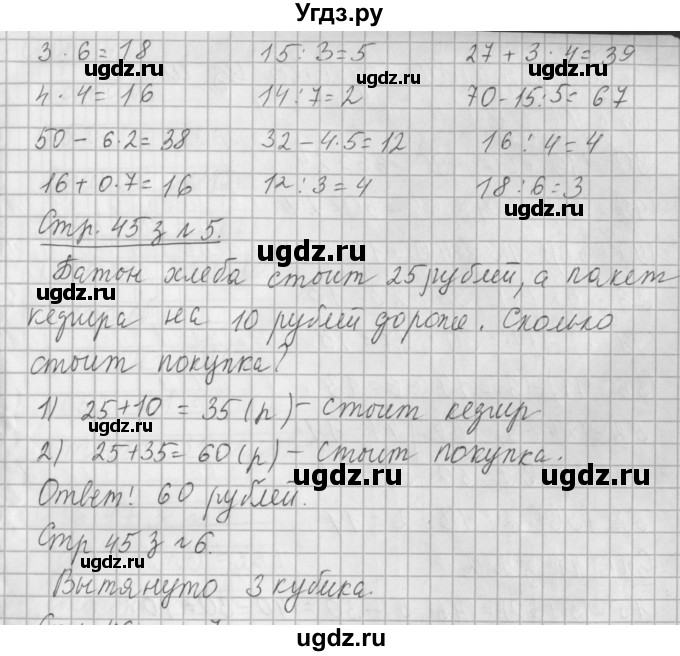 Угдз.ру
3 · 6 = 18   15 : 3 = 5   27 + 3 · 4 = 39
ugdz.ru ugdz.ru ugdz.ru
4 · 4 = 16   14 : 7 = 2   70 - 15 : 5 = 67
50 - 6 · 2 = 38   32 - 4 · 5 = 12   16 : 4 = 4
16 + 0 · 7 = 16   12 : 3 = 4   18 : 6 = 3
ugdz.ru
Стр. 45 з № 5.
ugdz.ru
Батон хлеба стоит 25 рублей, а пакет
ugdz.ru
кефира на 10 рублей дороже. Сколько
ugdz.ru
стоит покупка?
1) 25 + 10 = 35 (р) - стоит кефир
ugdz.ru
2) 25 + 35 = 60 (р) - стоит покупка.
ugdz.ru ugdz.ru
Ответ: 60 рублей.
Стр 45 з № 6.
ugdz.ru ugdz.ru
Вытянуто 3 кубика.
ugdz.ru